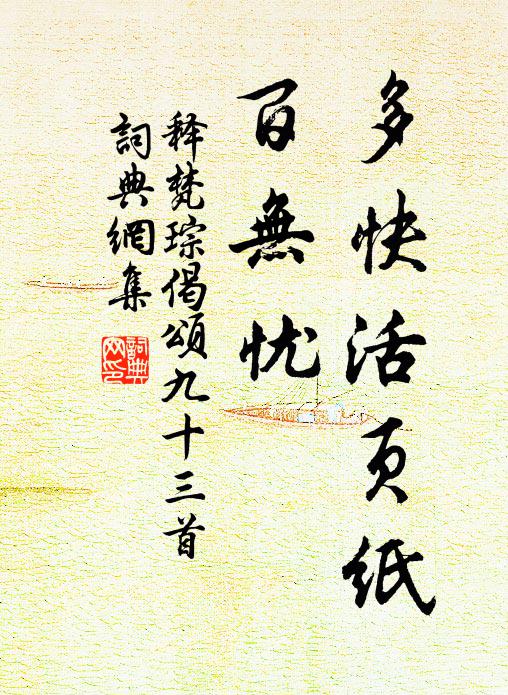 多快活页纸
百無忧
释梵琮偈頌九十三首
詞典網集
詞典
网印